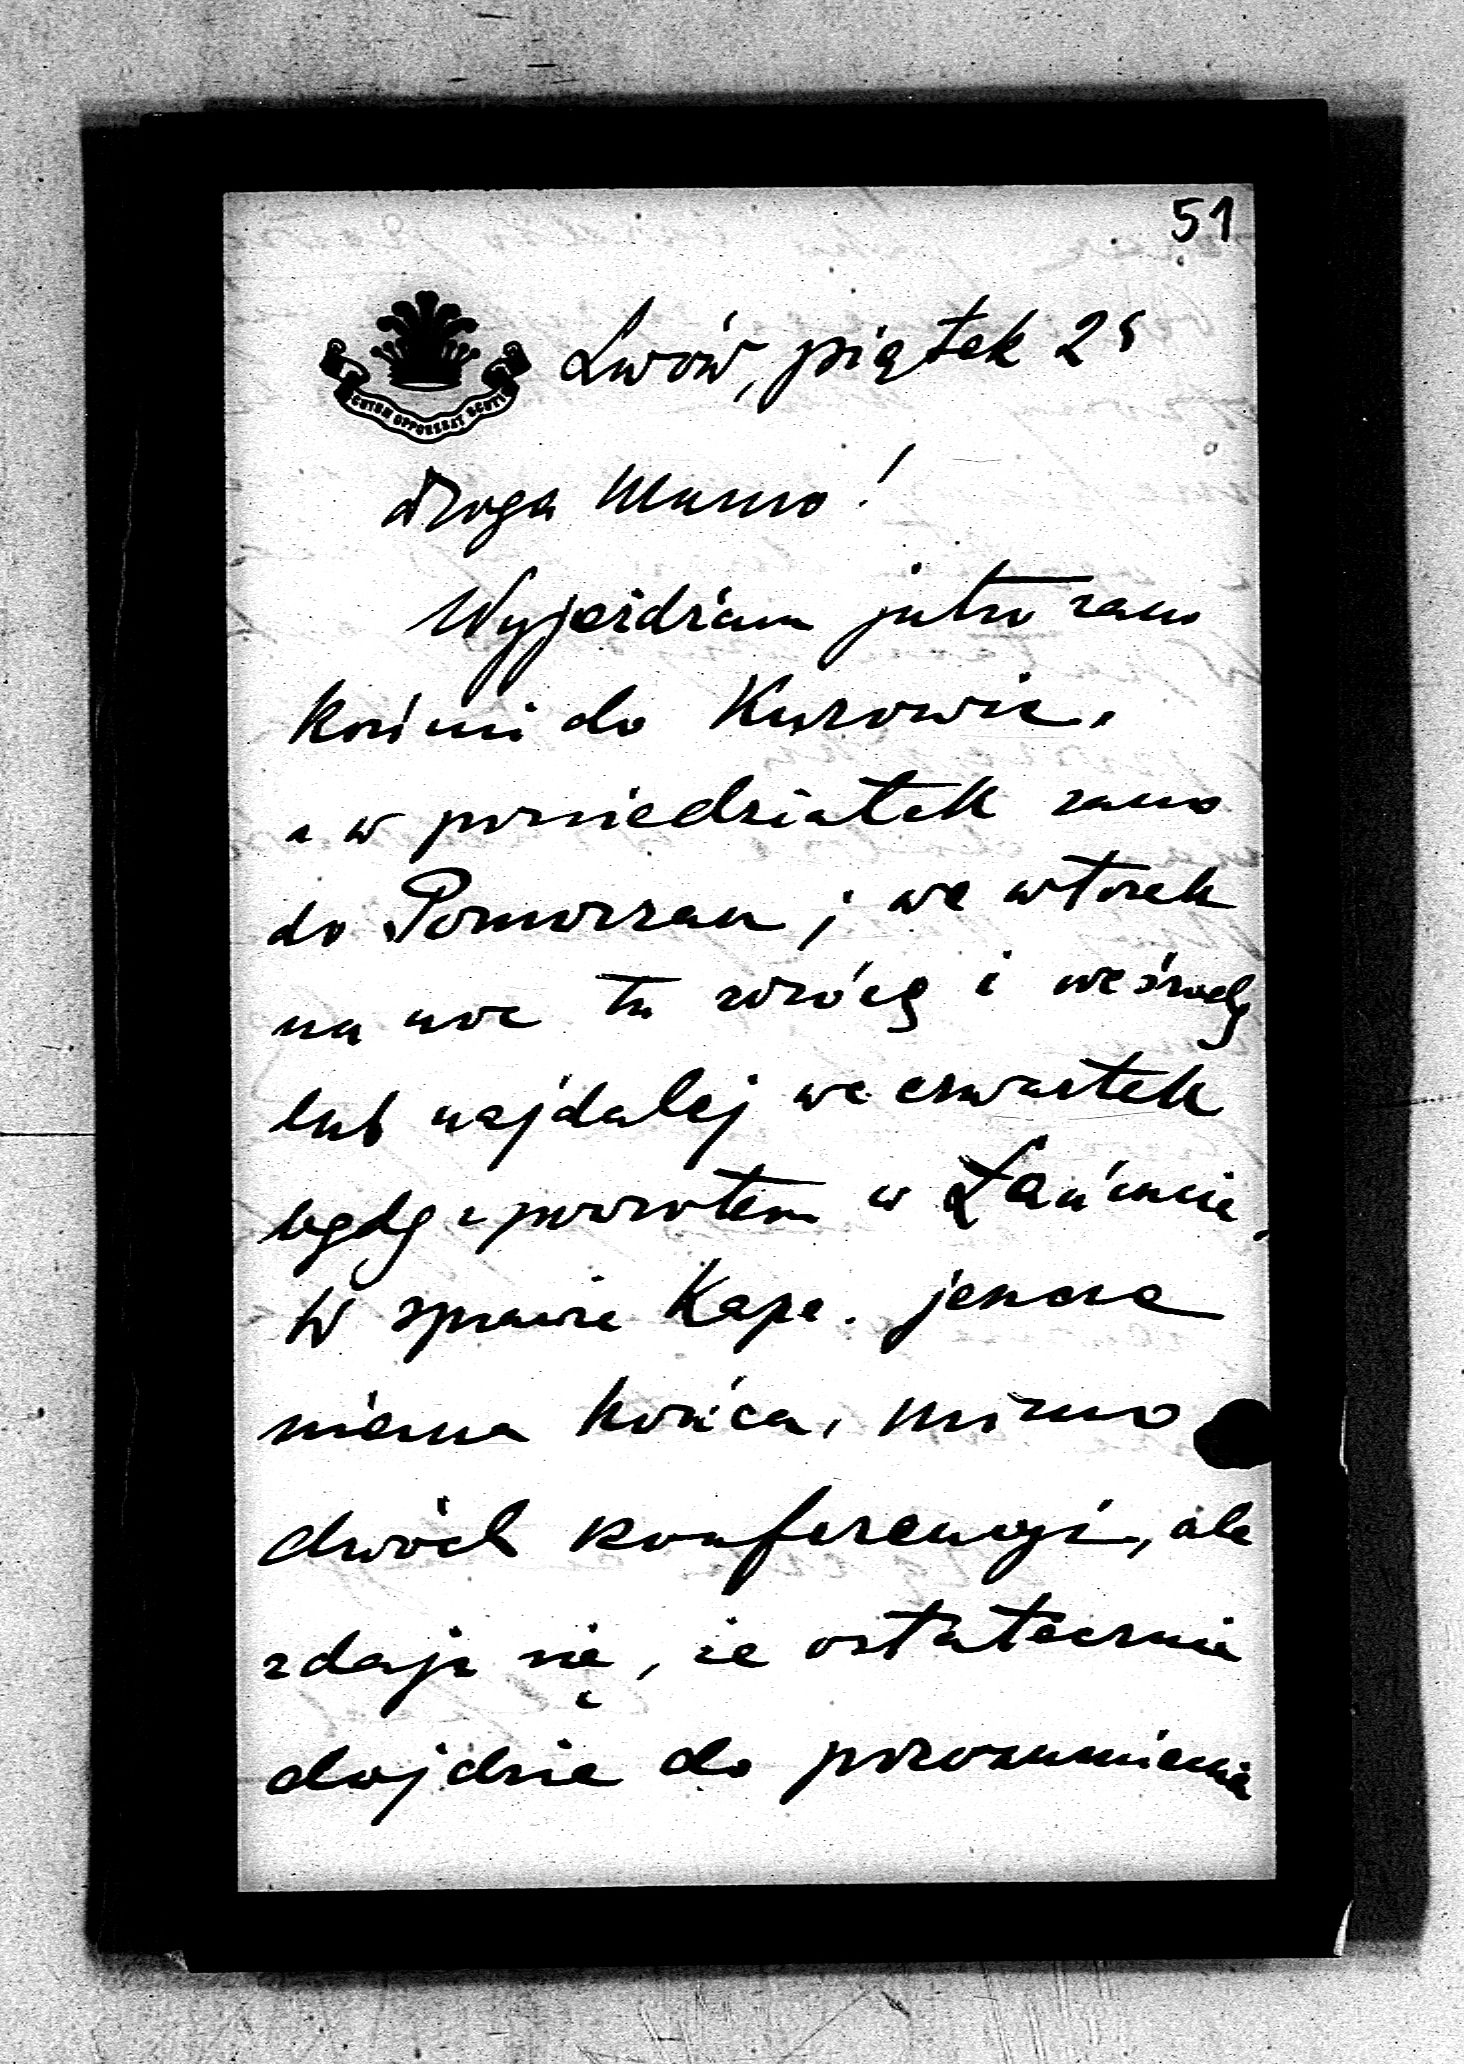 51
SCUTUM OPPONEBAT SCUTIS
Lwów, piątek 25
Droga Mamo!
Wyjeżdżam jutro rano
końmi do Kurowic,
a w poniedziałek rano
do Pomorzan; we wtorek
na noc tu wrócę i we środę
lub najdalej we czwartek
będę z powrotem w Łańcucie.
W sprawie Kape. jeszcze
niema końca, mimo
dwóch konferencyi, ale
zdaje się, że ostatecznie
dojdzie do porozumienia